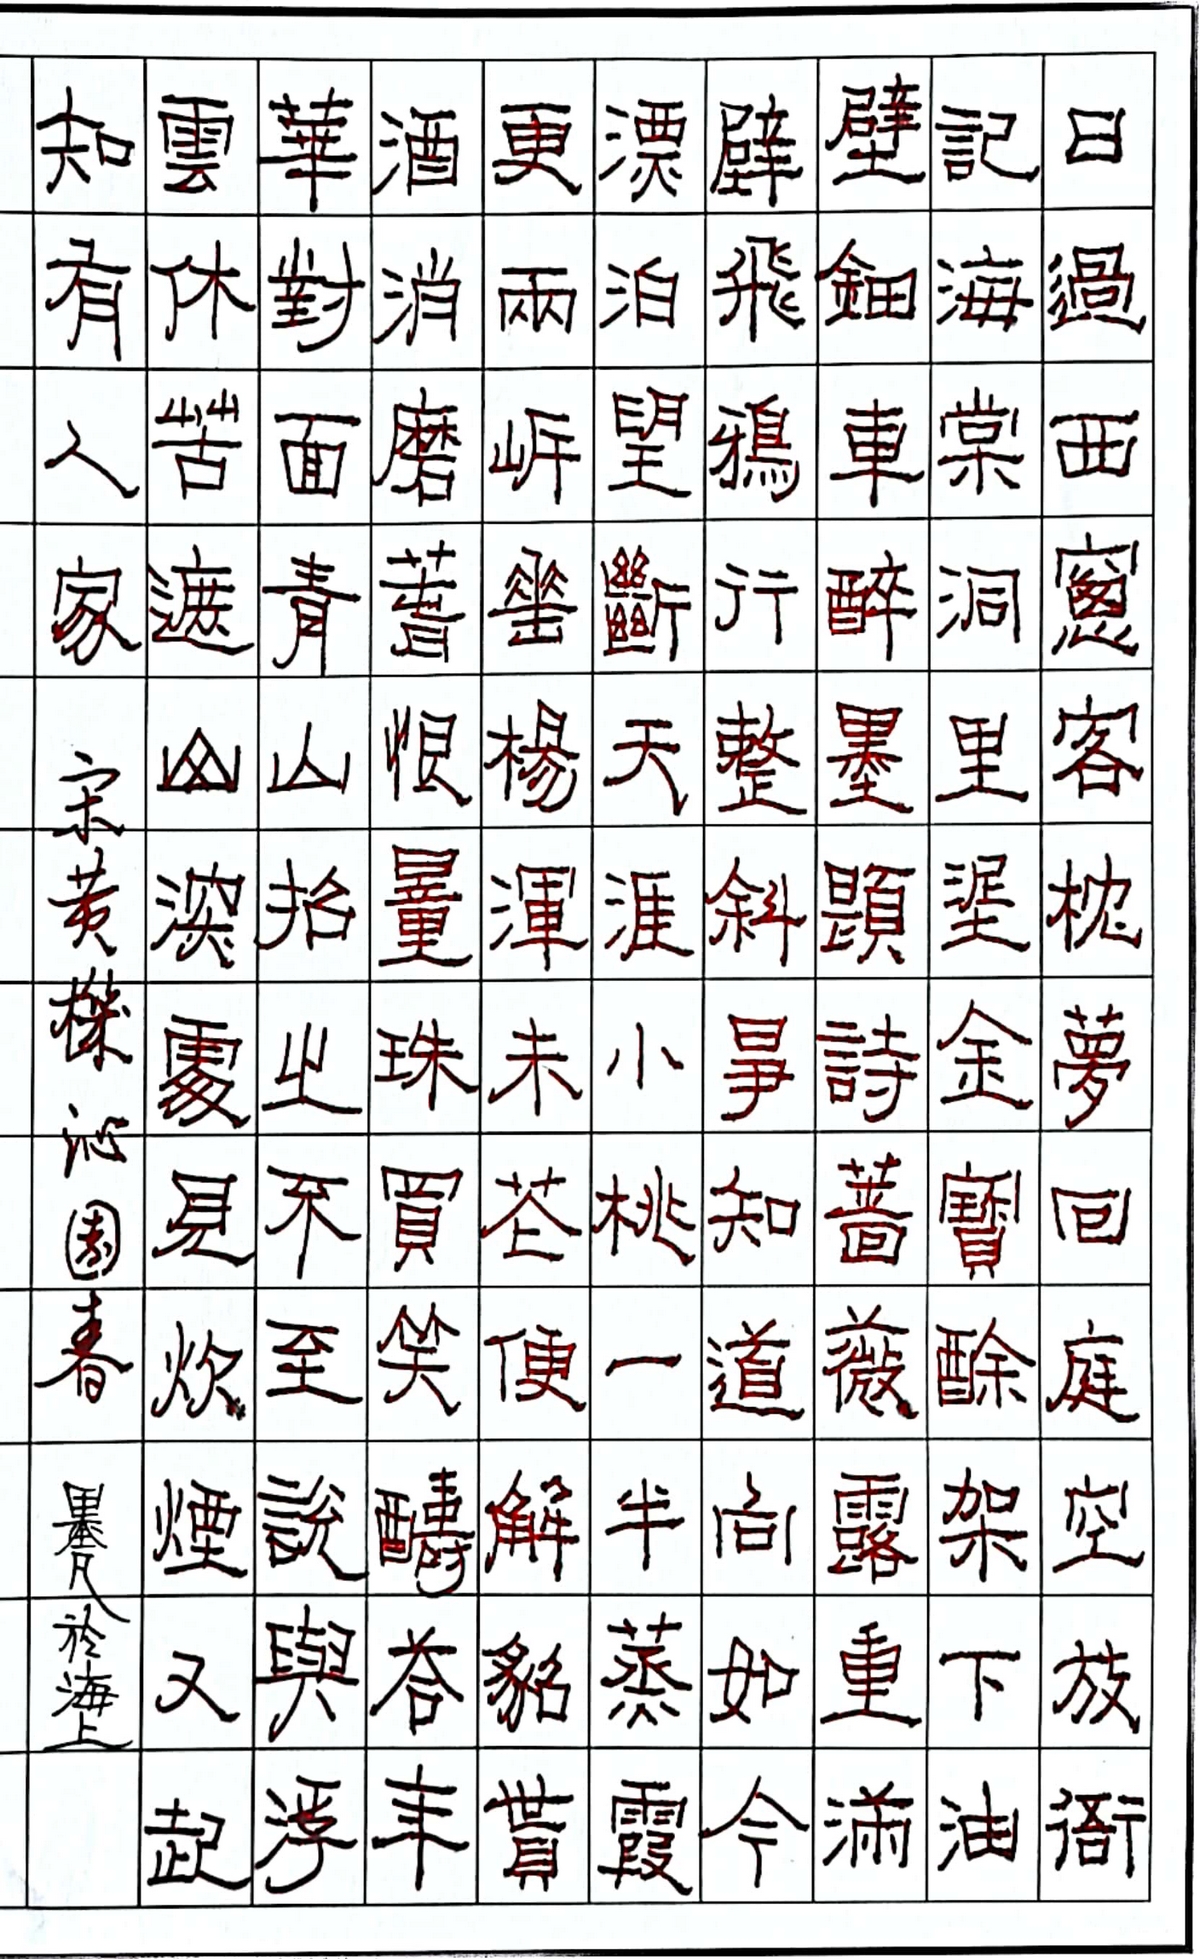 日過西窻客枕夢回庭空放衙
記海棠洞里埿金寶酴架下油
壁鈿車醉墨題詩薔薇露重滿
壁飛鴉行整斜爭知道向如今
漂泊望斷天涯小桃一半蒸霞
更兩岸垂楊渾未花便解貂貰
酒消磨春恨量珠買笑醻答年
華對面青山招之不至說與浮
雲休苦遮山深處見炊煙又起
知有人家 宋黃機沁園春 墨凡於海上